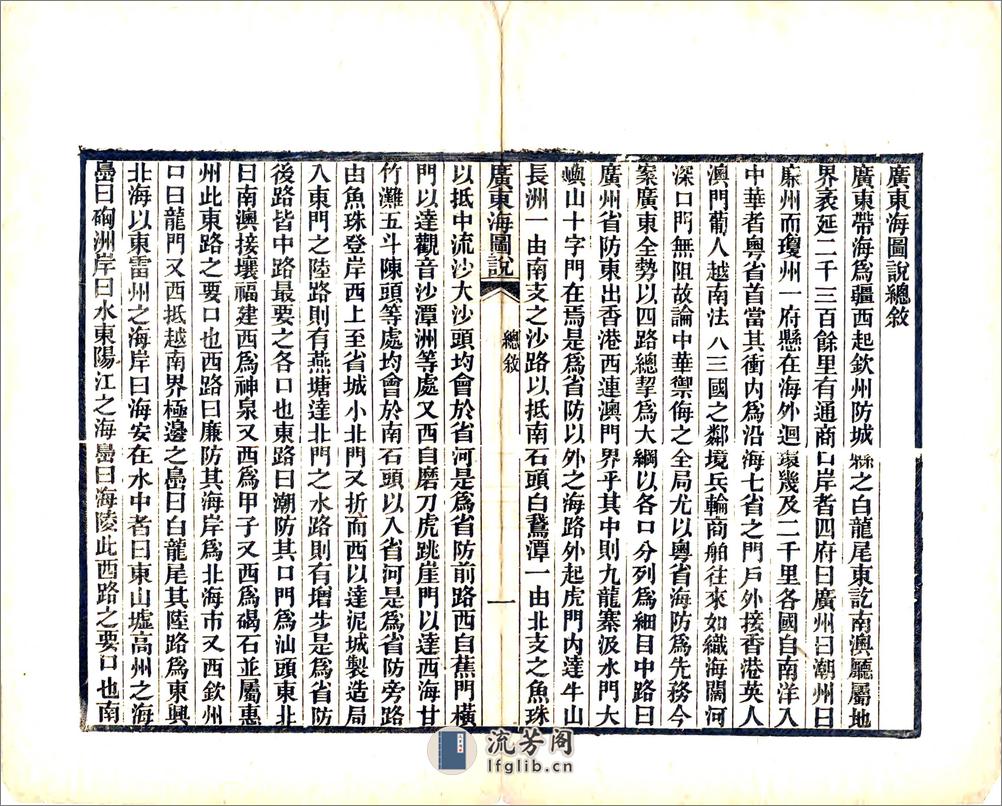 廣東海圖說總敘
廣東帶海爲疆西起欽州防城縣之白龍尾東訖南澳廳屬地
界袤延二千三百餘里有通商口岸者四府曰廣州曰潮州曰
廉州而瓊州一府懸在海外迴環幾及二千里各國自南洋入
中華者粵省首當其衝內爲沿海七省之門戶外接香港英人
澳門葡人越南法人三國之鄰境兵輪商舶往來如織海闊河
深口門無阻故論中華禦侮之全局尤以粵省海防爲先務今
案廣東全勢以四路總挈爲大綱以各口分列爲細目中路曰
廣州省防東出香港西連澳門界乎其中則九龍寨汲水門大
嶼山十字門在焉是爲省防以外之海路外起虎門內達牛山
長洲一由南支之沙路以抵南石頭白鵞潭一由北支之魚珠
廣東海圖說
總敘
一
以抵中流沙大沙頭均會於省河是爲省防前路西自蕉門橫
門以達觀音沙潭洲等處又西自磨刀虎跳崖門以達西海甘
竹灘五斗陳頭等處均會於南石頭以入省河是爲省防旁路
由魚珠登岸西上至省城小北門又折而西以達泥城製造局
入東門之陸路則有燕塘達北門之水路則有增步是爲省防
後路皆中路最要之各口也東路曰潮防其口門爲汕頭東北
曰南澳接壤福建西爲神泉又西爲甲子又西爲碣石並屬惠
州此東路之要口也西路曰廉防其海岸爲北海市又西欽州
口曰龍門又西抵越南界極邊之島曰白龍尾其陸路爲東興
北海以東雷州之海岸曰海安在水中者曰東山墟高州之海
島曰硇洲岸曰水東陽江之海島曰海陵此西路之要口也南
流芳阁
lfglib.cn